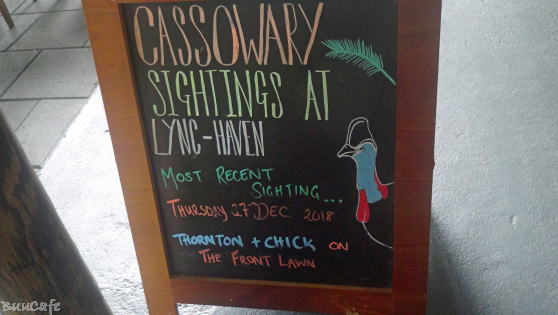 CASSOWARY
SIGHTINGS AT
LYNC-HAVEN
MOST RECENT
SIGHTING...
THURSDAY 27 DEC 2018
THORNTON + CHICK ON
THE FRONT LAWN
BuuCafe